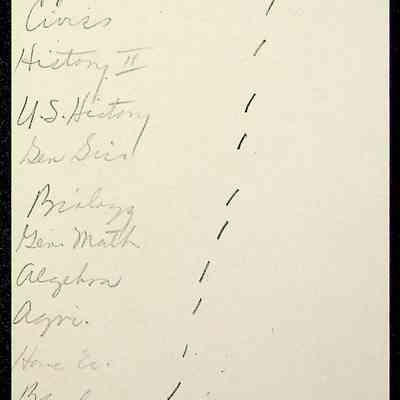 Civics /
History II /
U.S. History /
Gen Sci /
Biology /
Gen. Math /
Algebra /
Agri. /
Home Ec. /
/